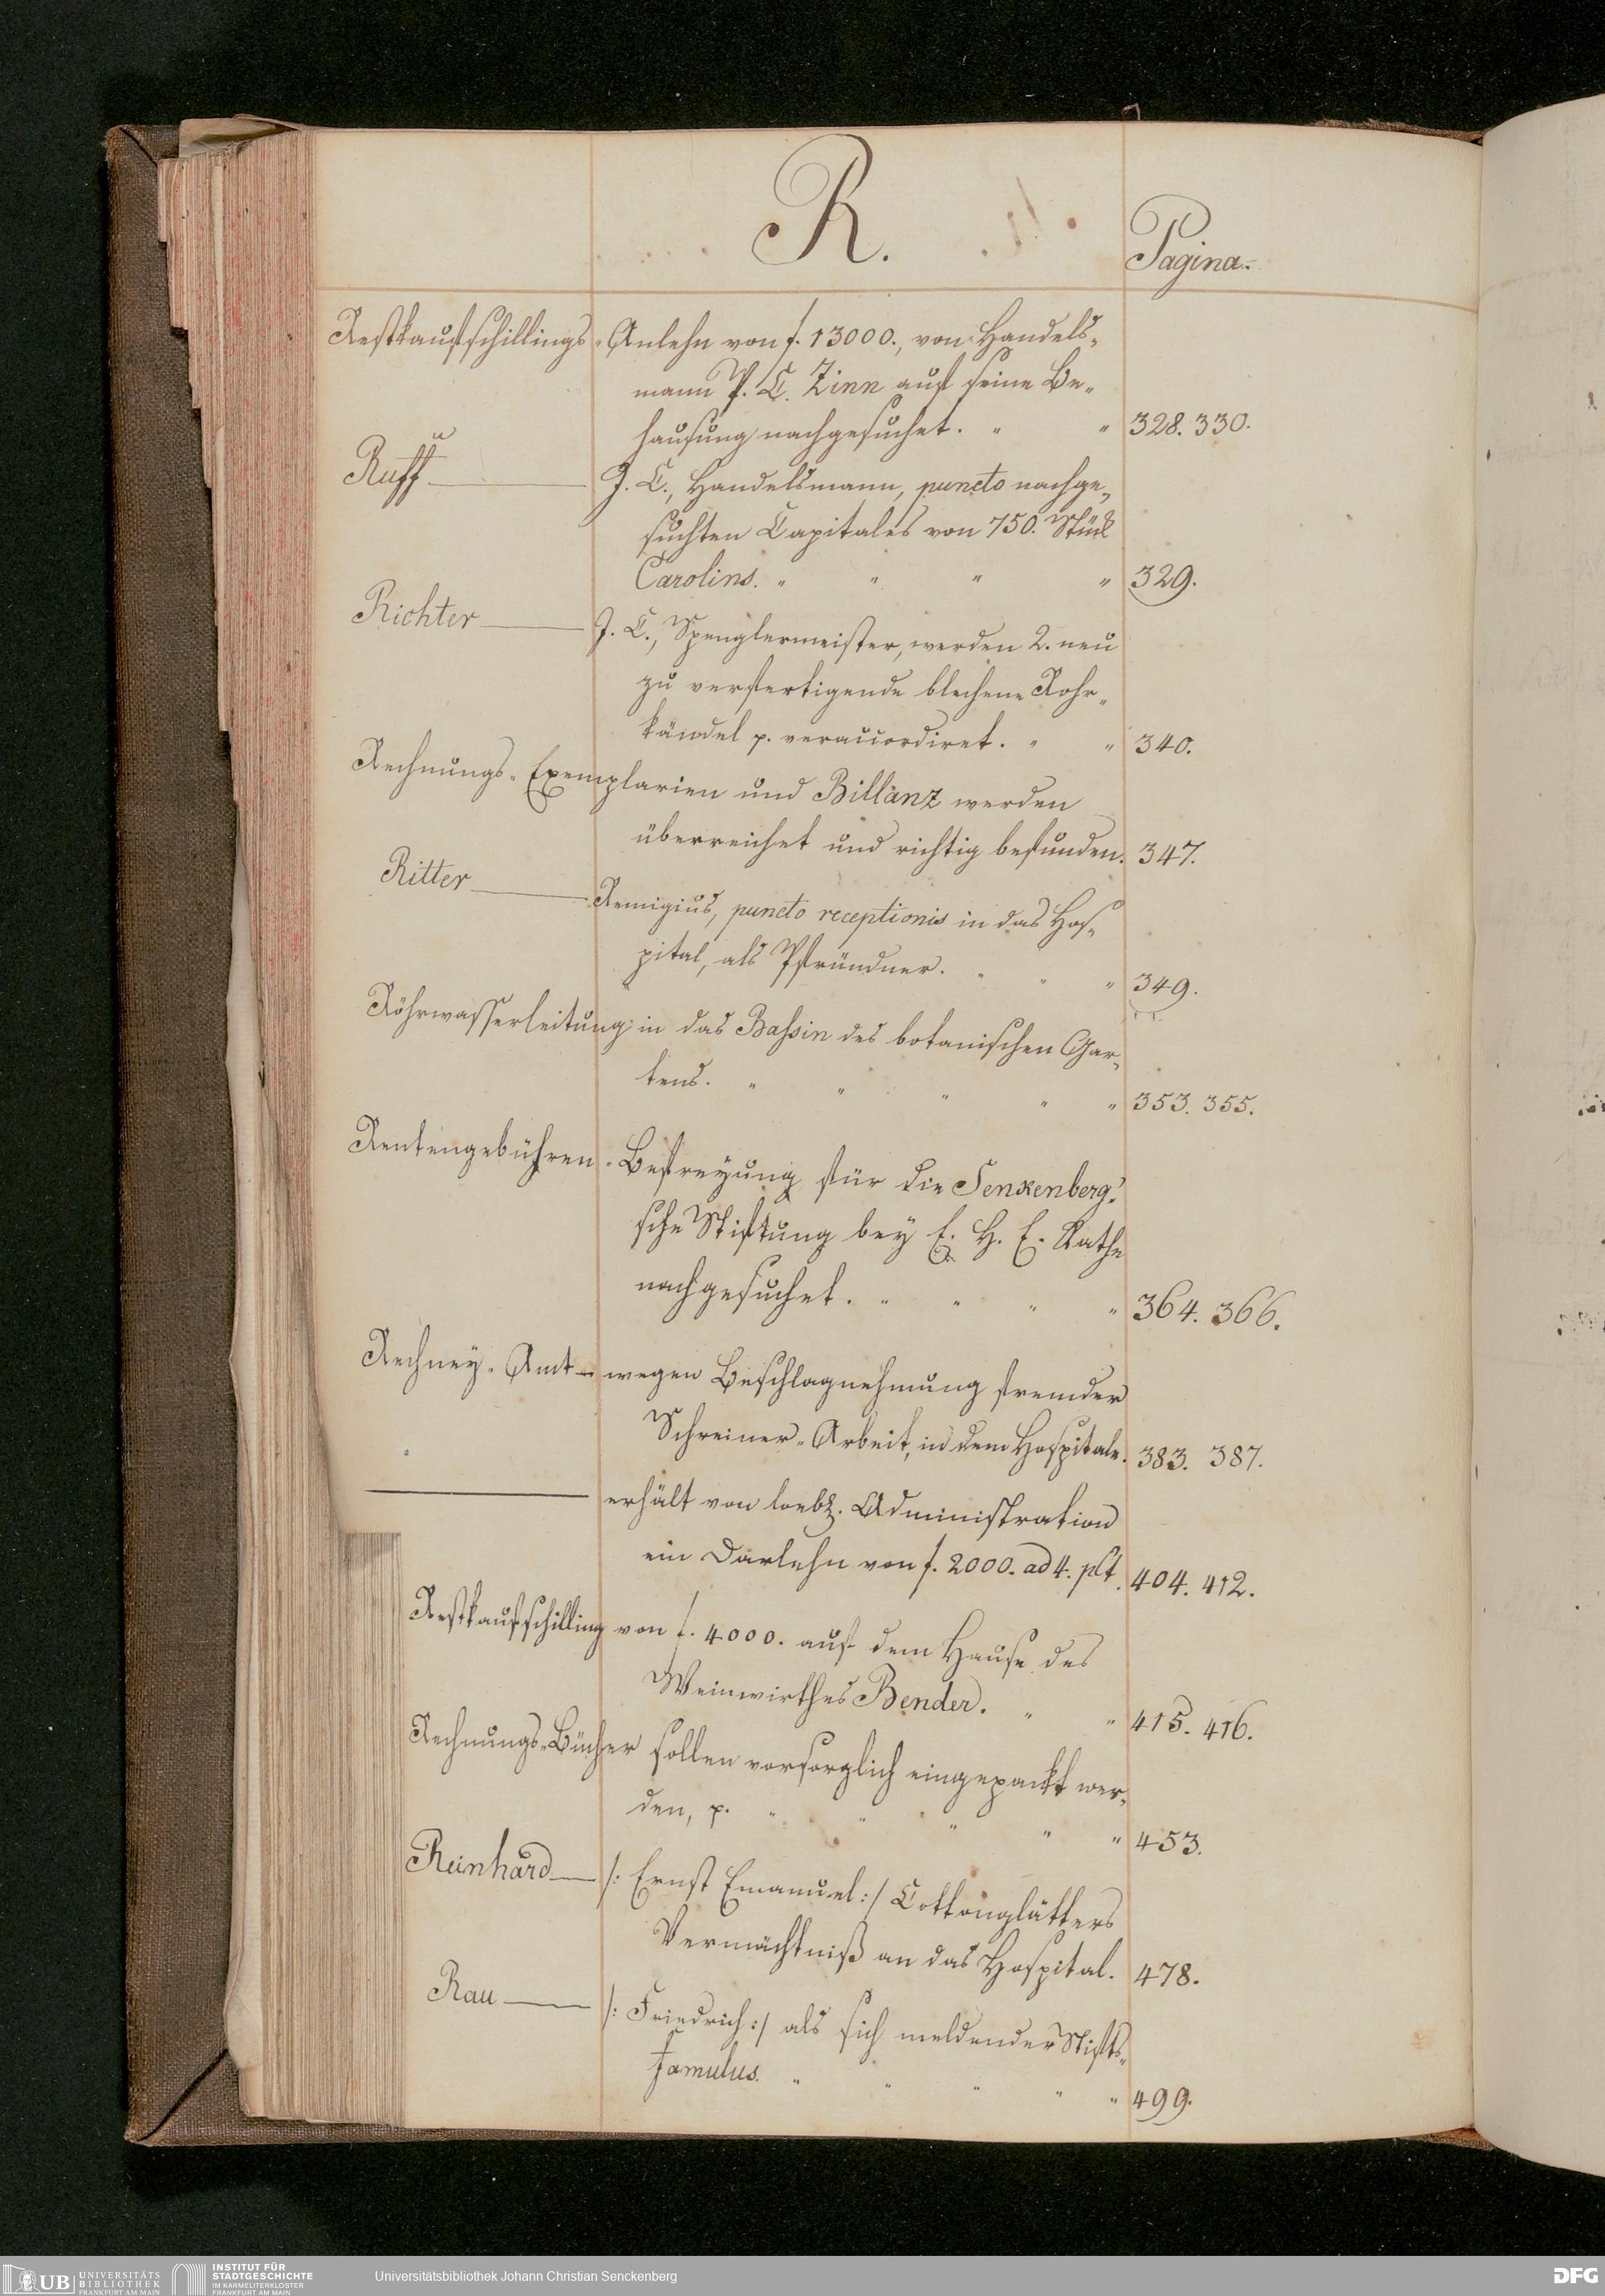 R.
Pagina.
Restkaufschillings-Anlehn von f. 13000., von Handels-
mann P. C. Zinn auf seine Be-
hausung nachgesuchet. " " 328. 330.
Ruff J. C., Handelsmann, puncto nachge-
suchten Capitales von 750. Stück
Carolins. " " " " 329.
Richter J. C., Spenglermeister, werden 2. neu
zu verfertigende blechene Rohr-
kändel p. veraccordiret. " " 340.
Rechnungs-Exemplarien und Billanz werden
überreichet und richtig befunden. 347.
Ritter Remigius, puncto receptionis in das Hos-
pital, als Pfründner. " " " 349.
Röhrwasserleitung in das Bassin des botanischen Gar-
tens. " " " " " 353. 355.
Rentengebühren-Befreyung für die Senkenberg'-
sche Stiftung bey E. H. E. Rathe
nachgesuchet. " " " " 364. 366.
Rechney-Amt wegen Beschlagnehmung fremder
Schreiner-Arbeit, in dem Hospitale. 383. 387.
erhält von loebl. Administration
ein Darlehn von f. 2000. ad 4. pCt. 404. 412.
Restkaufschilling von f. 4000. auf dem Hause des
Weinwirthes Bender. " " 415. 416.
Rechnungs-Bücher sollen vorsorglich eingepackt wer-
den, p. " " " " " 453.
Reinhard /: Ernst Emanuel :/ Cottonglätters
Vermächtniß an das Hospital. 478.
Rau /: Friedrich :/ als sich meldender Stifts-
famulus. " " " " " 499.
UB UNIVERSITÄTS
BIBLIOTHEK
FRANKFURT AM MAIN
INSTITUT FÜR
STADTGESCHICHTE
IM KARMELITERKLOSTER
FRANKFURT AM MAIN
Universitätsbibliothek Johann Christian Senckenberg
DFG